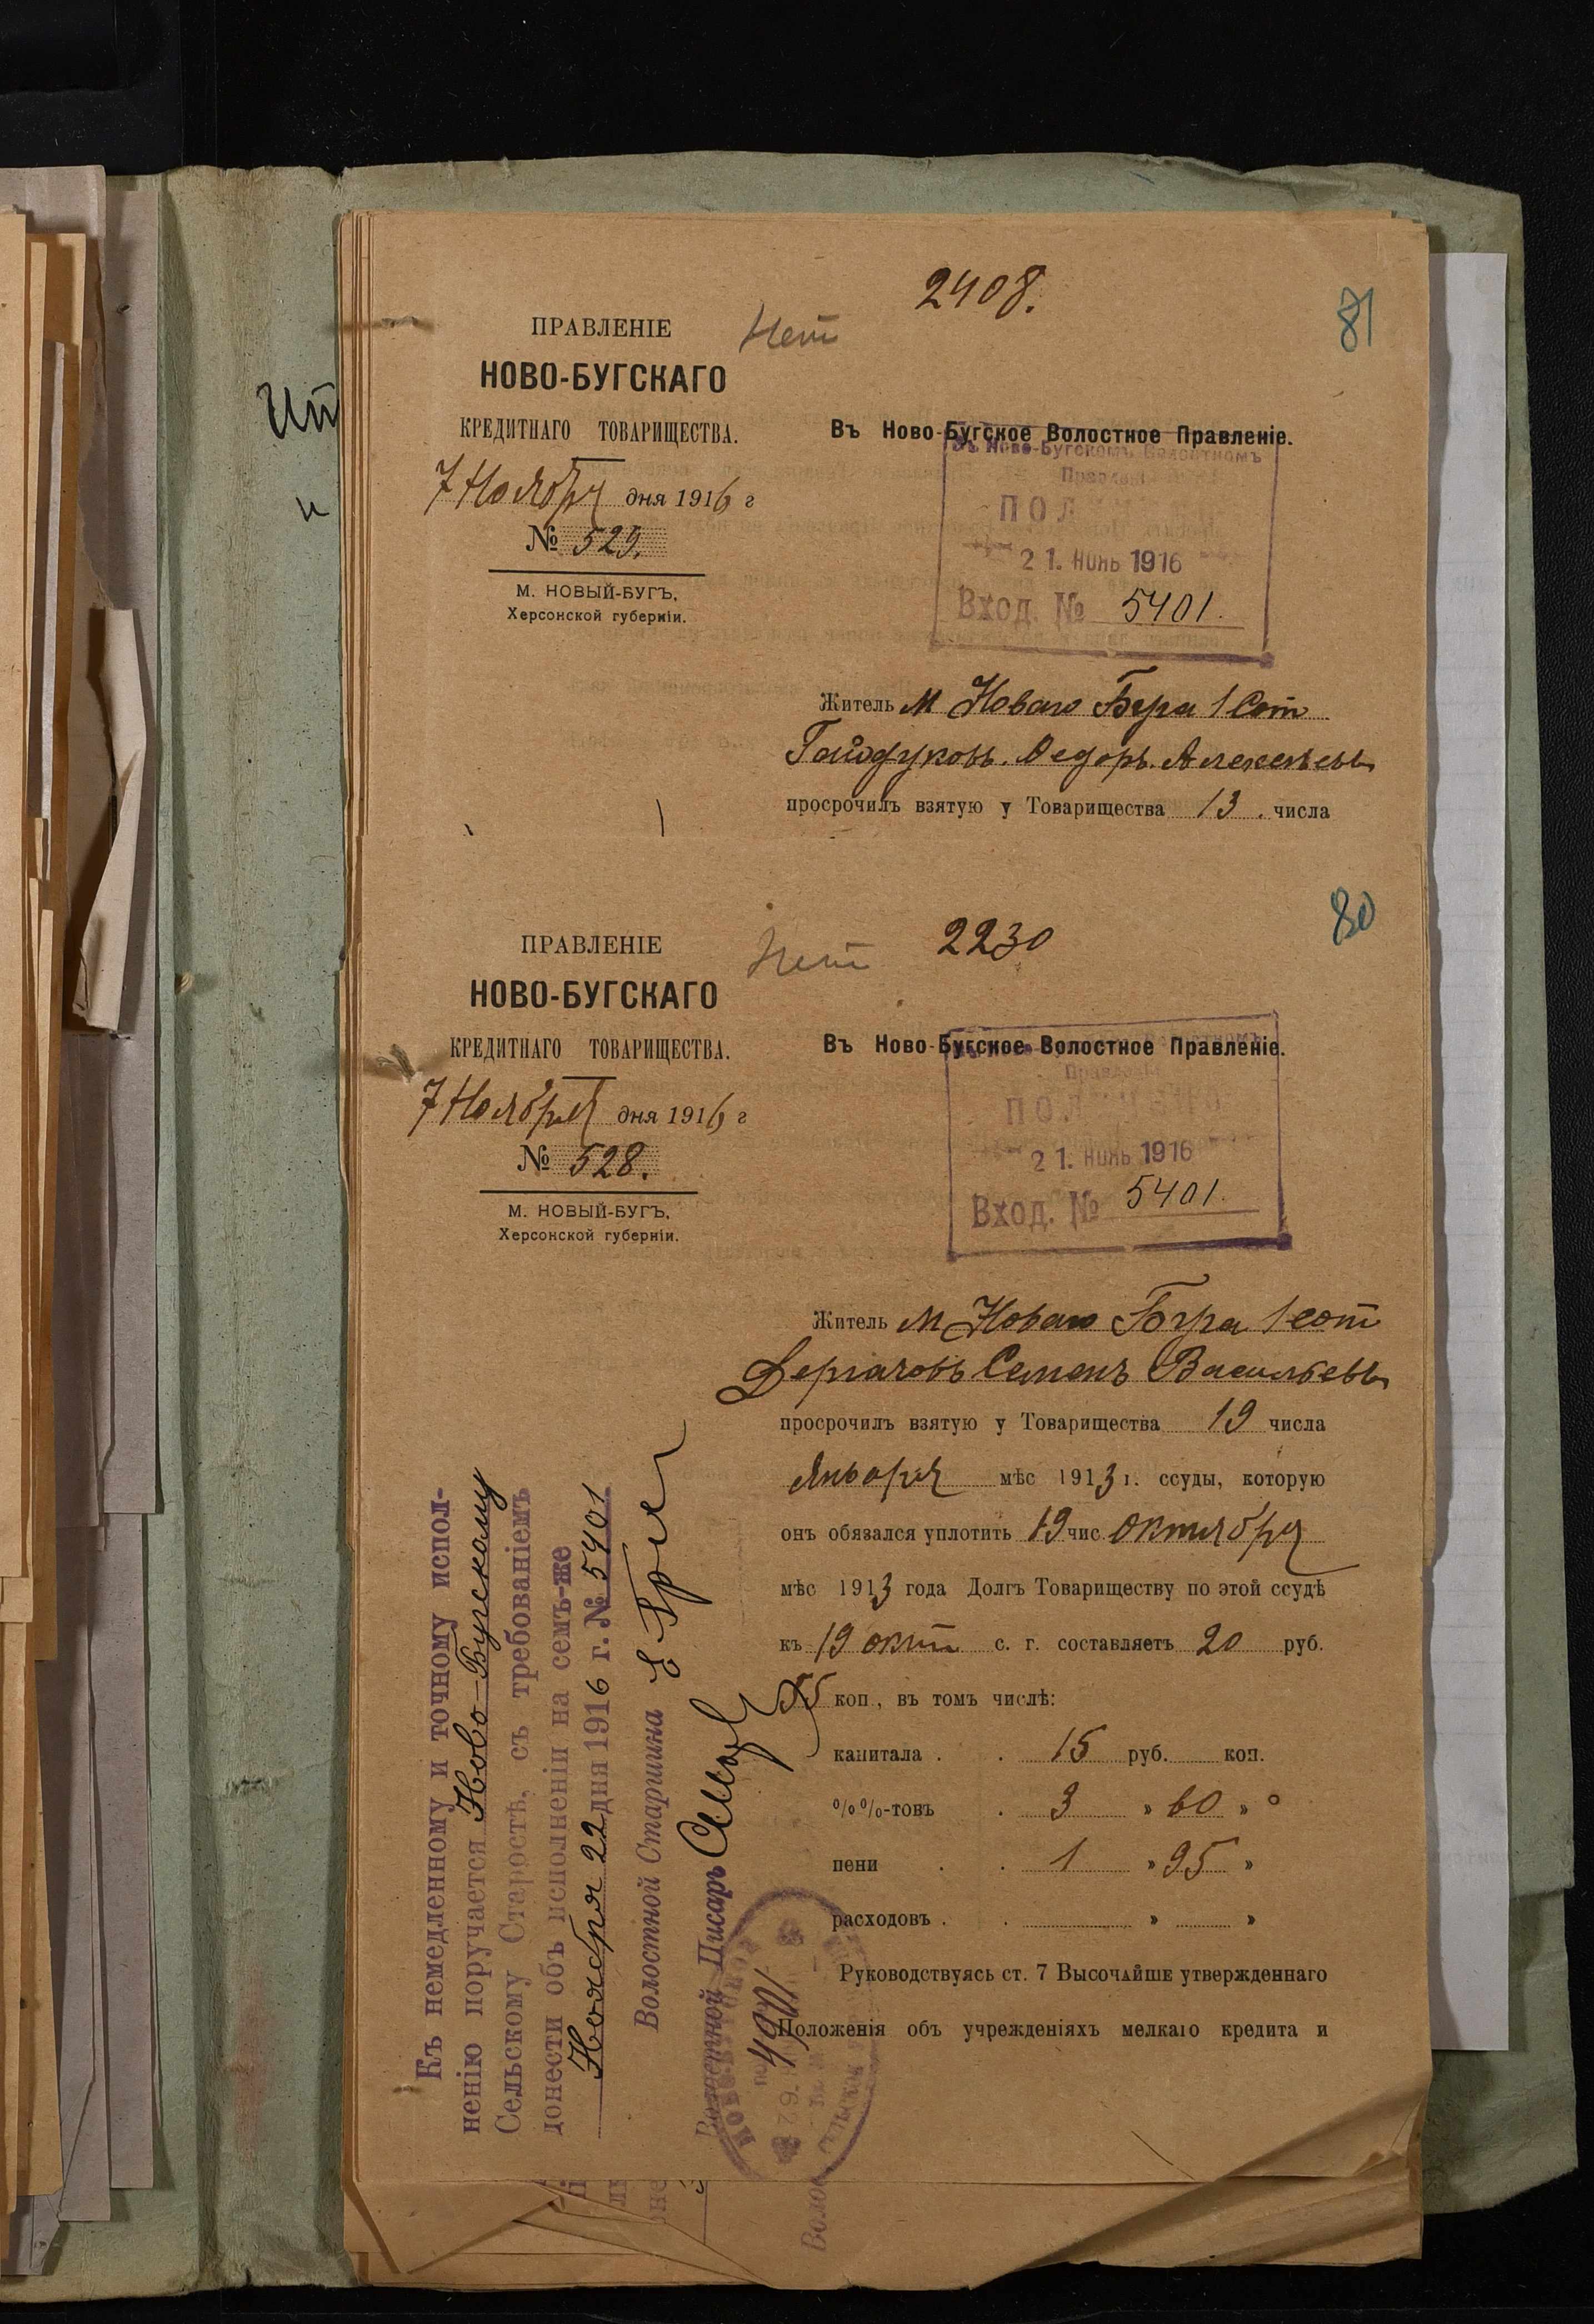 2408.
81
Нет
ПРАВЛЕНІЕ
НОВО-БУГСКАГО
КРЕДИТНАГО ТОВАРИЩЕСТВА.
7 Ноября дня 1916 г
№ 529.
М. НОВЫЙ-БУГЪ,
Херсонской губерніи.
Въ Ново-Бугское Волостное Правленіе.
Въ Ново-Бугскомъ Волостномъ
Правленіи
ПОЛ
21. НОЯБ 1916
Вход. № 5401.
Житель М Новаго Буга 1 Сот
Гайдуковъ Федоръ Алексѣевъ
просрочилъ взятую у Товарищества 13 числа
80
2230
Нет
ПРАВЛЕНІЕ
НОВО-БУГСКАГО
КРЕДИТНАГО ТОВАРИЩЕСТВА.
7 Ноября дня 1916 г
№ 528.
М. НОВЫЙ-БУГЪ,
Херсонской губерніи.
Въ Ново-Бугское Волостное Правленіе.
21. НОЯБ 1916
Вход. № 5401.
Житель М Новаго Буга 1 сот
Дергачовъ Семенъ Васильевъ
просрочилъ взятую у Товарищества 19 числа
Января мѣс 1913 г. ссуды, которую
онъ обязался уплотить 19 чис. Октября
мѣс 1913 года Долгъ Товариществу по этой ссудѣ
къ 19 окт с. г. составляетъ 20 руб.
55 коп., въ томъ числѣ:
капитала . . 15 руб. коп.
%%-товъ . 3 » 60 »
пени . . 1 » 95 »
расходовъ . . » »
Руководствуясь ст. 7 Высочайше утвержденнаго
Положенія объ учрежденіяхъ мелкаго кредита и
Къ немедленному и точному испол-
ненію поручается Ново-Бугскому
Сельскому Старостѣ, съ требованіемъ
донести объ исполненіи на семъ-же
Ноября 22 дня 1916 г. № 5401
Волостной Старшина
Волостной Писарь